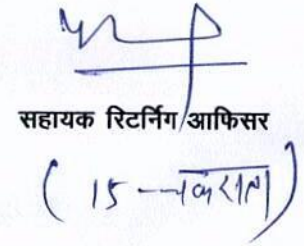 सहायक रिटर्निंग आफिसर
( 15 - चकराता )